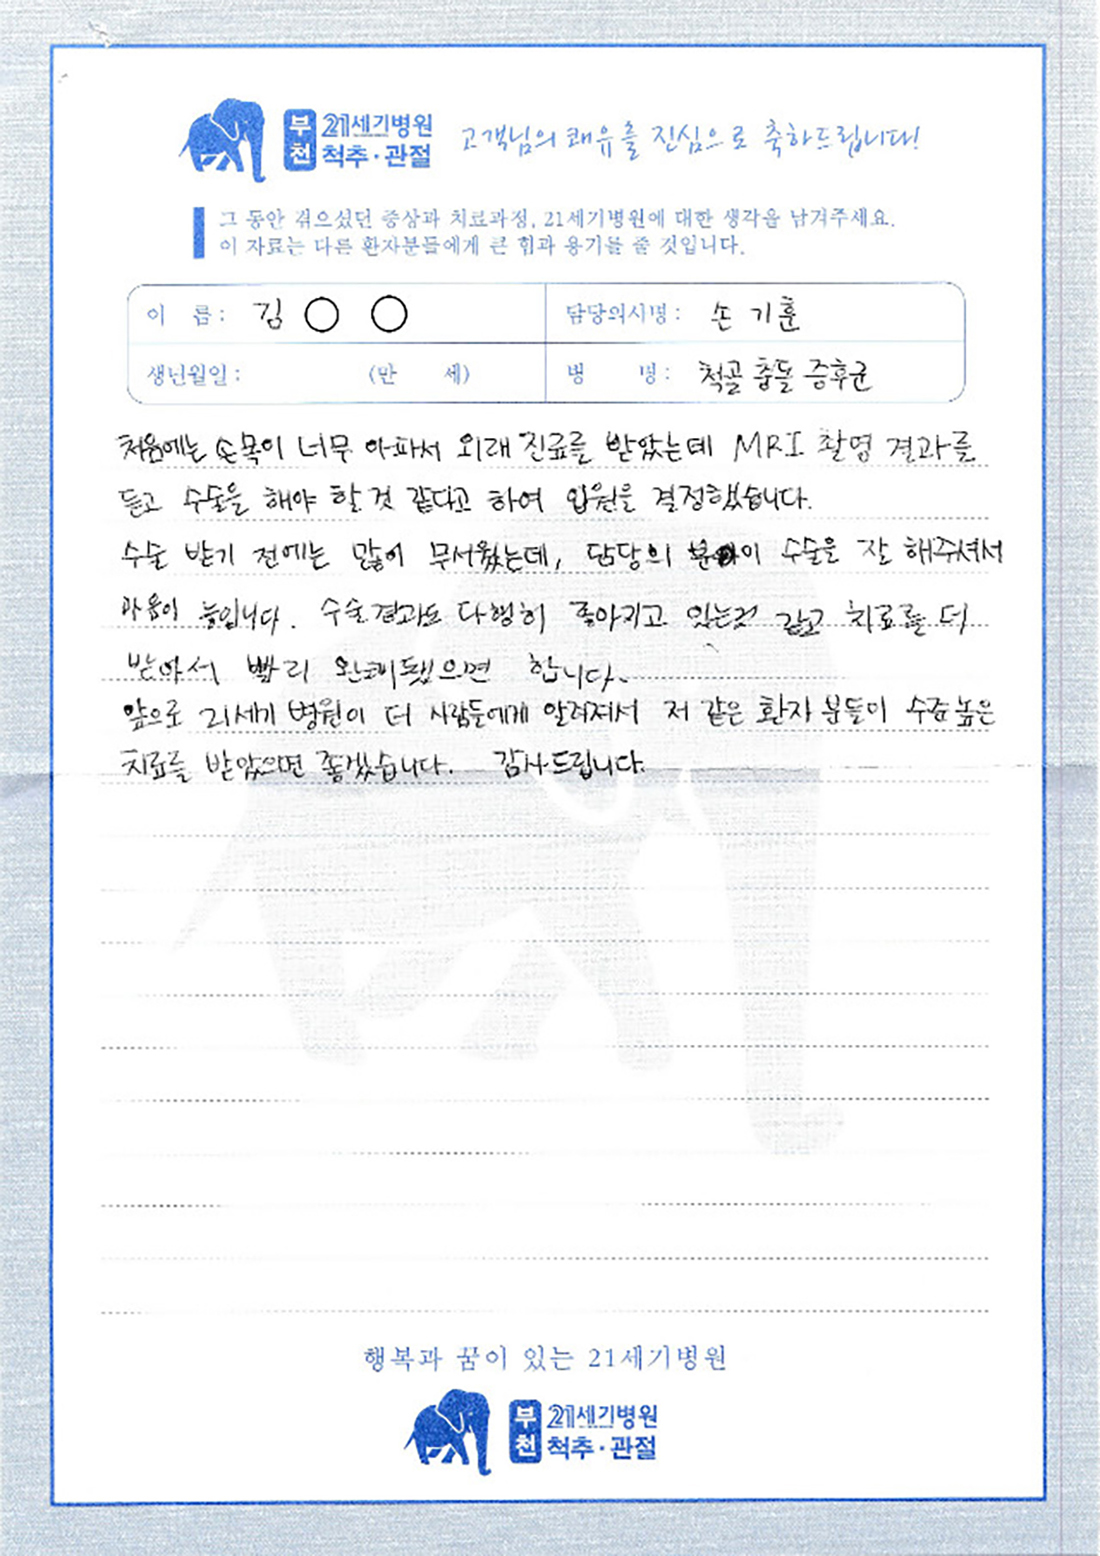 부천 21세기병원 척추·관절 고객님의 쾌유를 진심으로 축하드립니다!
그 동안 겪으셨던 증상과 치료과정, 21세기병원에 대한 생각을 남겨주세요.
이 자료는 다른 환자분들에게 큰 힘과 용기를 줄 것입니다.
이 름 : 김 ○ ○ 담당의사명 : 손 기훈
생년월일 : (만 세) 병 명 : 척골 충돌 증후군
처음에는 손목이 너무 아파서 외래 진료를 받았는데 MRI 촬영 결과를
듣고 수술을 해야 할 것 같다고 하여 입원을 결정했습니다.
수술 받기 전에는 많이 무서웠는데, 담당의 분이 수술을 잘 해주셔서
마음이 놓입니다. 수술결과도 다행히 좋아지고 있는것 같고 치료를 더
받아서 빨리 완쾌됐으면 합니다.
앞으로 21세기 병원이 더 사람들에게 알려져서 저 같은 환자 분들이 수준 높은
치료를 받았으면 좋겠습니다. 감사드립니다.
행복과 꿈이 있는 21세기병원
부천 21세기병원 척추·관절